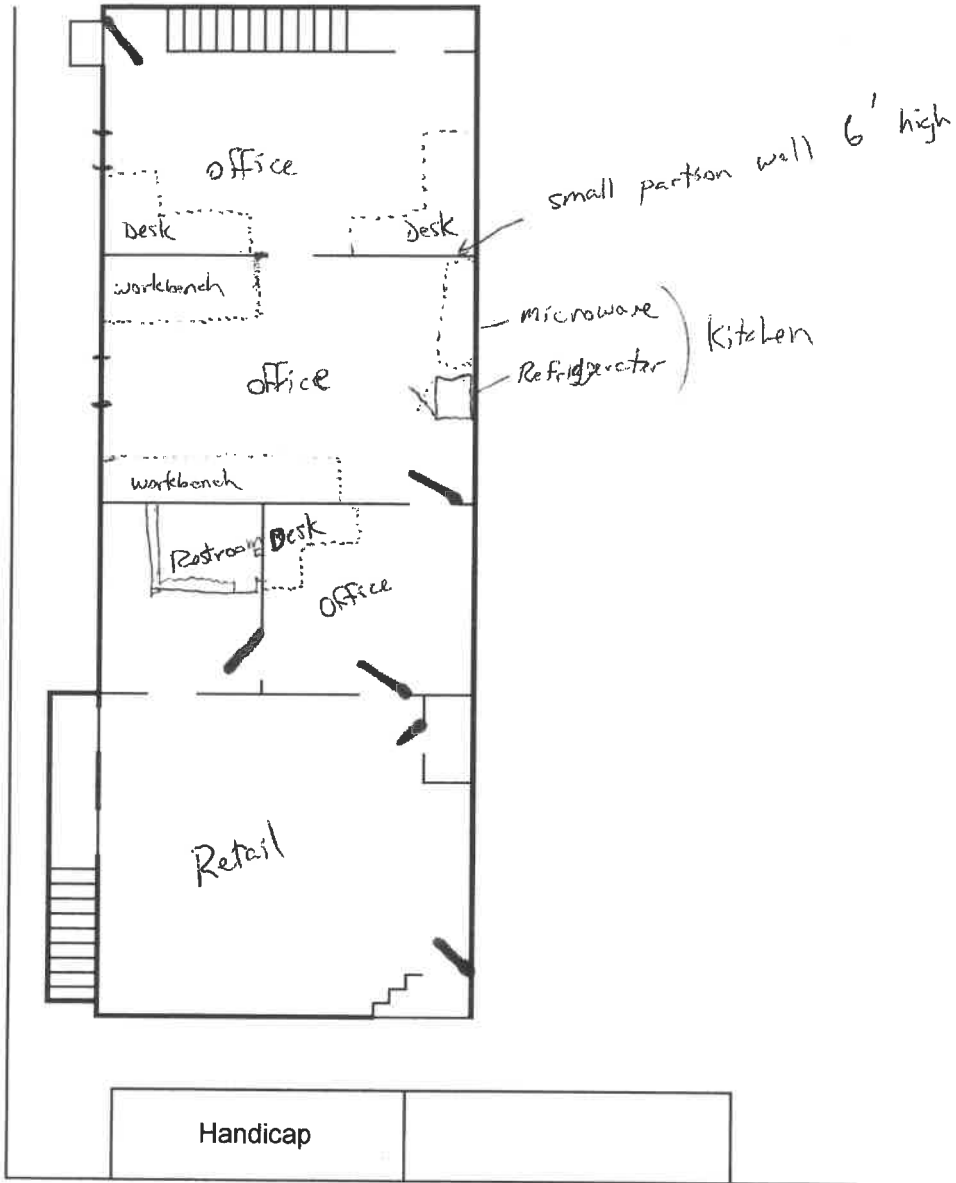 small partson wall 6' high
office
Desk
Desk
workbench
microwave
Refrigerator
Kitchen
office
workbench
Restroom
Desk
Office
Retail
Handicap